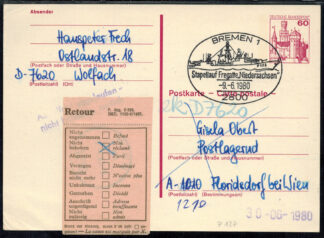 Absender
Hanspeter Frech
Ostlandstr. 18
(Postfach oder Straße und Hausnummer)
D-7620 Wolfach
(Postleitzahl) (Ort)
BREMEN 1
Stapellauf Fregatte „Niedersachsen"
-9.-6.1980
2800
DEUTSCHE BUNDESPOST
60
Postkarte – Carte postale
Retour
Nicht
angenommen
Refusé
Nicht
behoben
Non
réclamé
Abgereist
Parti
Verzogen
Déménagé
Verstorben
Décédé
Unbekannt
Inconnu
Gestrichen
Annulé
Anschrift
ungenügend
Adresse
insuffisante
Nicht
zulässig
Non
admis
D7620
Gisela Obert
Postlagernd
(Postfach oder Straße und Hausnummer)
A-1010 Floridsdorf bei Wien
(Postleitzahl) (Bestimmungsort)
1210
30-06-1980